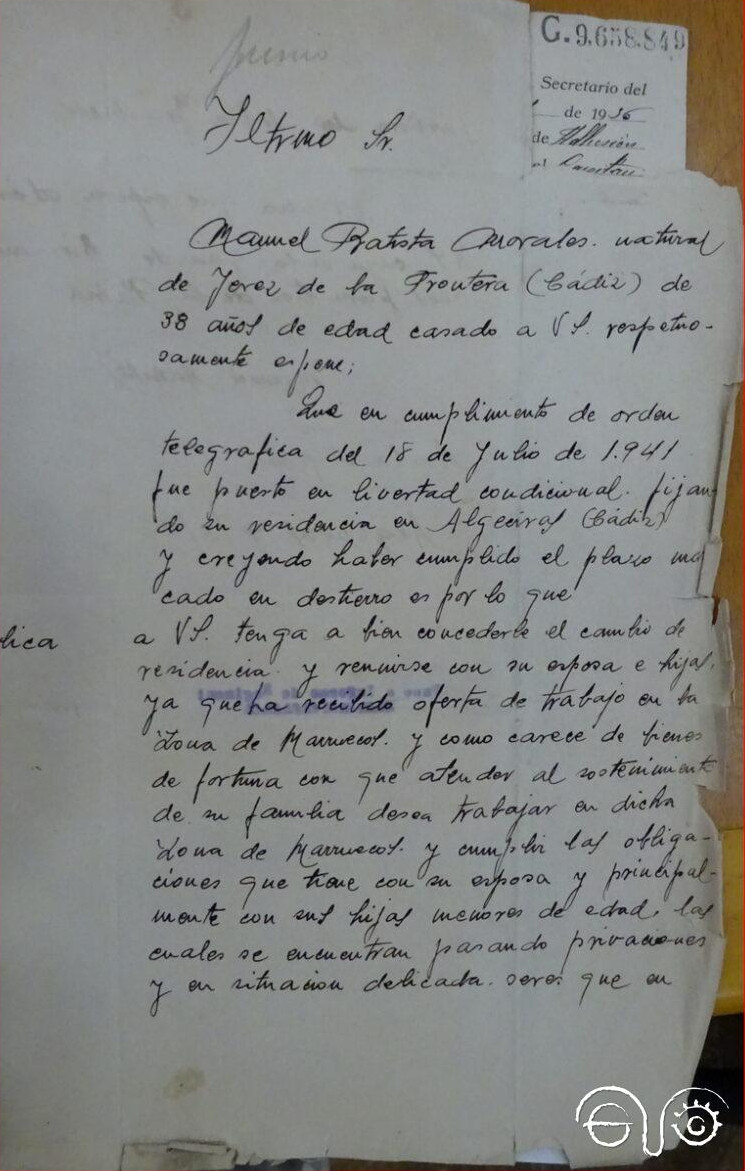 junio
G.9.658.849
Secretario del
de 1936
de
Iltmo Sr.
Manuel Batista Morales. natural
de Jerez de la Frontera (Cádiz) de
38 años de edad casado a VS. respetuo-
samente espone;
Que en cumplimento de orden
telegrafica del 18 de Julio de 1.941
fue puesto en livertad condicional. fijan-
do su residencia en Algeciras (Cádiz)
y creyendo haber cumplido el plazo mar
cado en destierro es por lo que
lica
a VS. tenga a bien concederle el cambio de
residencia y reunirse con su esposa e hijas,
ya que ha recibido oferta de trabajo en la
Zona de Marruecos. y como carece de bienes
de fortuna con que atender al sostenimiento
de su familia desea trabajar en dicha
Zona de Marruecos. y cumplir las obliga-
ciones que tiene con su esposa y principal-
mente con sus hijas menores de edad, las
cuales se encuentran pasando privaciones
y en situacion delicada. seres que en